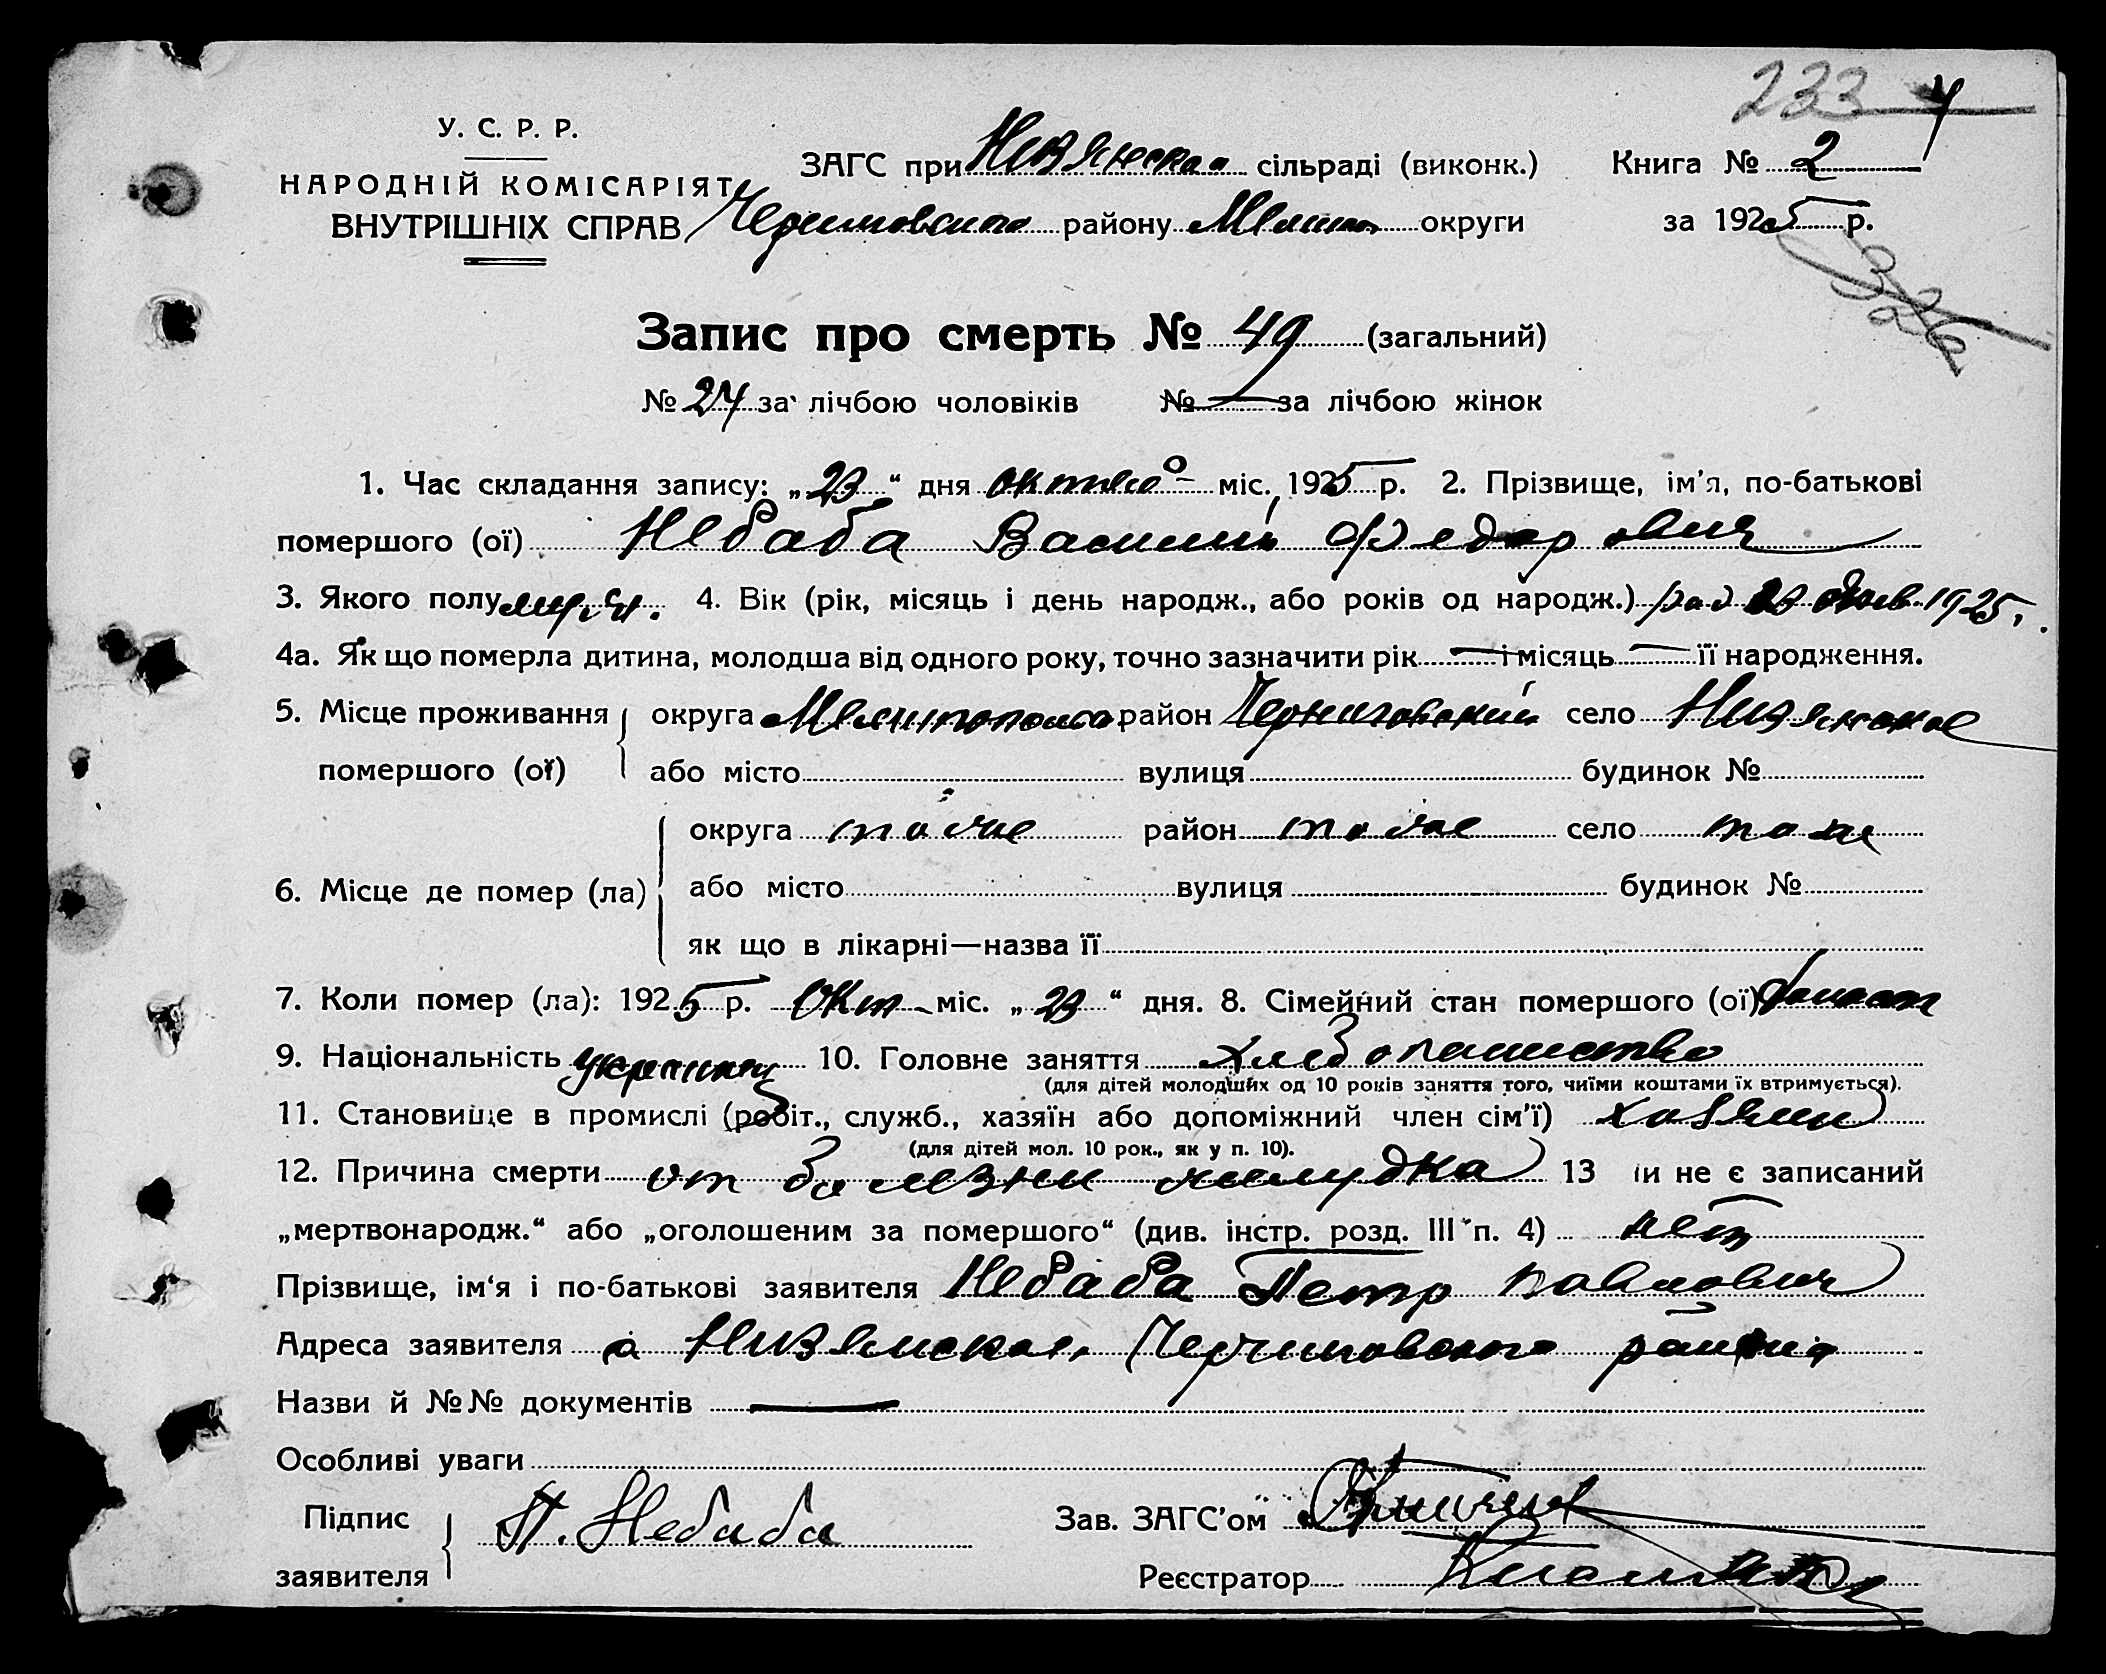 233 4
У. С. Р. Р.
НАРОДНІЙ КОМІСАРІЯТ
ВНУТРІШНІХ СПРАВ
ЗАГС при Низянской сільраді (виконк.) Книга № 2
Черниговского району Мелит округи за 1925 р.
326
Запис про смерть № 49 (загальний)
№ 24 за лічбою чоловіків № — за лічбою жінок
1. Час складання запису: „23“ дня октяб міс. 1925 р. 2. Прізвище, ім'я, по-батькові
помершого (ої) Небаба Василий Федорович
3. Якого полу муж. 4. Вік (рік, місяць і день народж., або років од народж.) 1925
4а. Як що померла дитина, молодша від одного року, точно зазначити рік — і місяць — її народження.
5. Місце проживання округа Мелитопольск район Черниговский село Низянское
помершого (ої) або місто вулиця будинок №
округа тоже район тоже село тоже
6. Місце де помер (ла) або місто вулиця будинок №
як що в лікарні—назва її
7. Коли помер (ла): 1925 р. Окт міс. „23“ дня. 8. Сімейний стан помершого (ої) холост
9. Національність украинец 10. Головне заняття хлебопашество
(для дітей молодших од 10 років заняття того, чиїми коштами їх втримується).
11. Становище в промислі (робіт., служб., хазяїн або допоміжний член сім'ї) хозяин
(для дітей мол. 10 рок., як у п. 10).
12. Причина смерти от болезни желудка 13 и не є записаний
„мертвонародж.“ або „оголошеним за помершого“ (див. інстр. розд. III п. 4) нет
Прізвище, ім'я і по-батькові заявителя Небаба Петр Павлович
Адреса заявителя с Низянское, Черниговского района
Назви й №№ документів —
Особливі уваги
Підпис заявителя П. Небаба Зав. ЗАГС'ом
Реєстратор